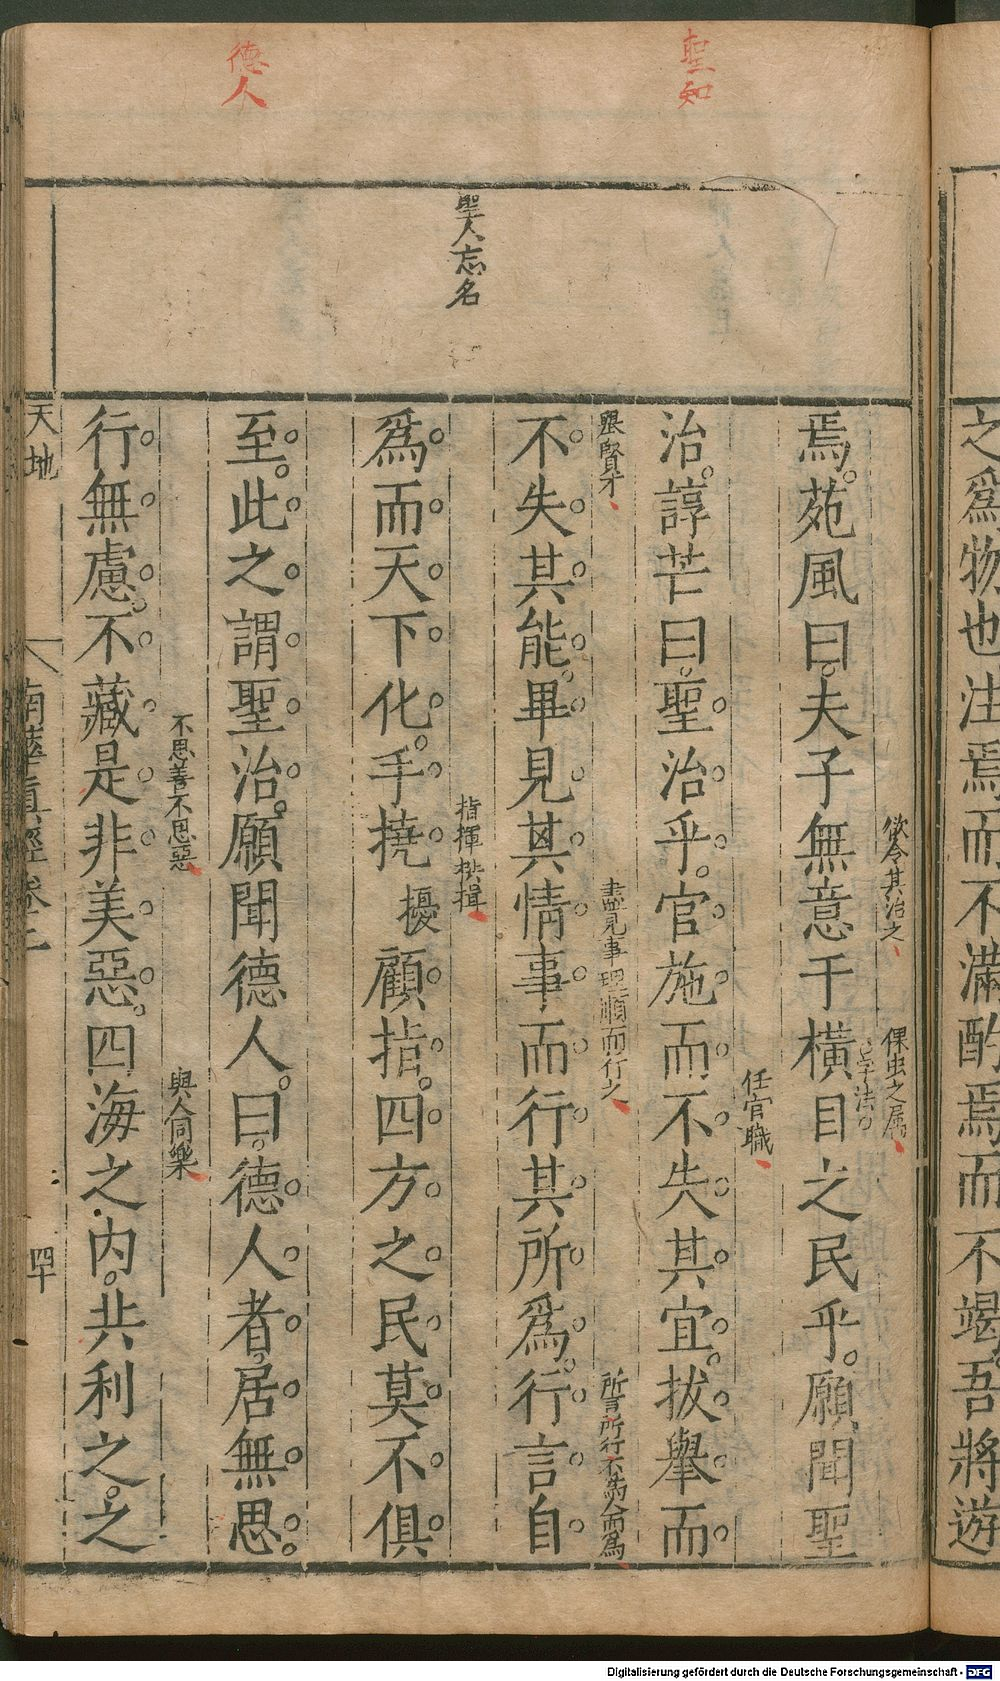 之爲物也注焉而不滿酌焉而不竭吾將遊
聖知
德人
聖人忘名
焉。苑風曰。夫子無意于橫目之民乎。願聞聖
欲令其治之
倮虫之属
治。諄芒曰。聖治乎。官施而不失其宜。拔舉而
任官職
不失其能。畢見其情事而行其所爲。行言自
賢才
盡見事理順而行之
所言所行不為人而為
爲而天下化。手撓擾顧指。四方之民莫不俱
指揮
至。此之謂聖治。願聞德人。曰。德人者。居無思。
行無慮。不藏是非美惡。四海之内。共利之。之
不思善不思惡
與人同樂
天地
南華真經卷二
四十
Digitalisierung gefördert durch die Deutsche Forschungsgemeinschaft - DFG